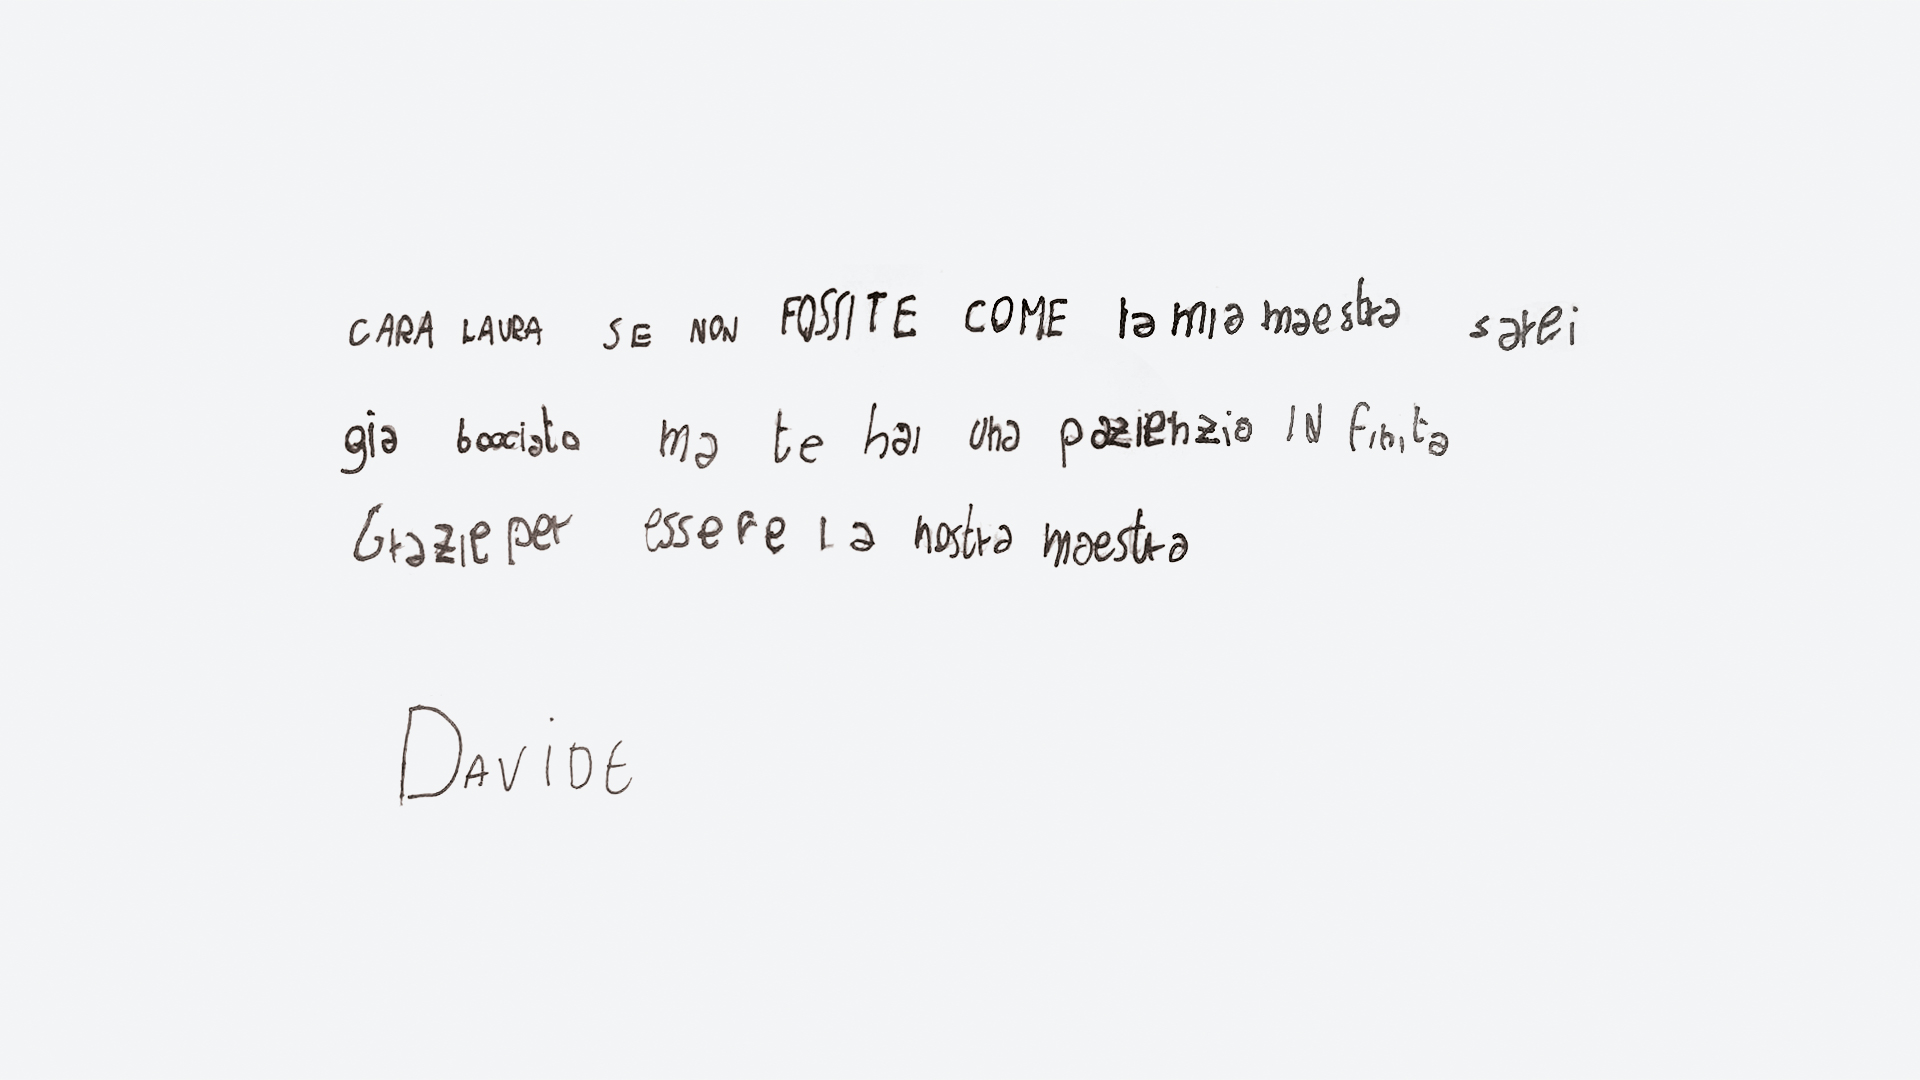 CARA LAURA SE NON FOSSITE COME la mia maestra sarei
gia bocciato ma te hai una pazienzia IN finita
Grazie per essere la nostra maestra
DAViDE